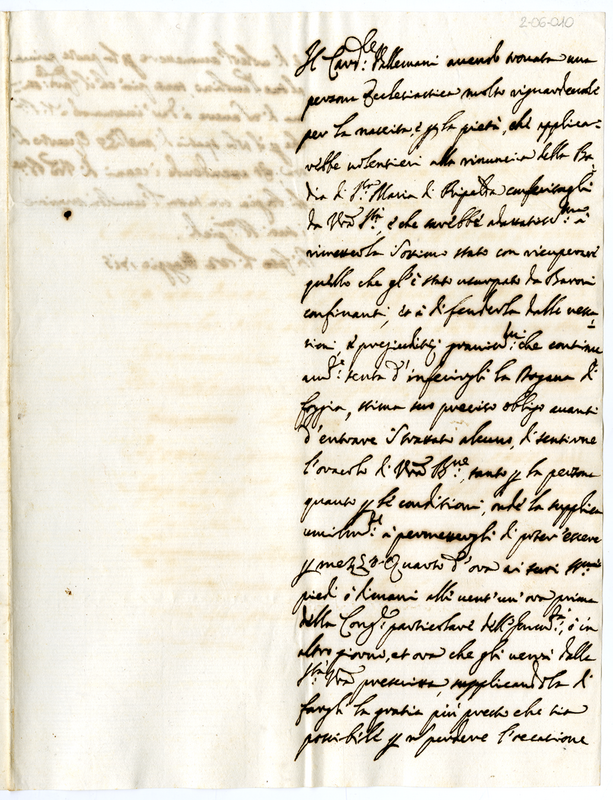 2-06-010
Il Card.le Vallemani avendo trovata una
persona Ecclesiastica molto riguardevole
per la nascita, e p la pietà, che applica-
rebbe volentieri alla rinuncia della Ba
dia di S.ta Maria di Ripalta conferitagli
da Vra S.tà, e che sarebbe adattatiss.mo à
rimetterla in ottimo stato con ricuperare
quello che gl'è stato usurpato da Baroni
confinanti, et à difenderla dalle vessa
tioni, e pregiuditij gravissi.mi che continu
am.te tenta d'inferirgli la Dogana di
foggia, stima suo preciso obligo avanti
d'entrare in trattato alcuno, di sentirne
l'oracolo di Vra B.ne, tanto p la persona
quanto p le conditioni, onde la supplica
umilm.te à permettergli di poter essere
p mezzo Quarto d'ora ai suoi SS.mi
piedi ò dimani alle vent'un'ora prima
della Cong.ne particolare dell', ò in
altro giorno, et ora che gli verrà dalla
S.tà Vra prescritta, supplicandola di
fargli la gratia più presto che sia
possibile p n perdere l'occasione